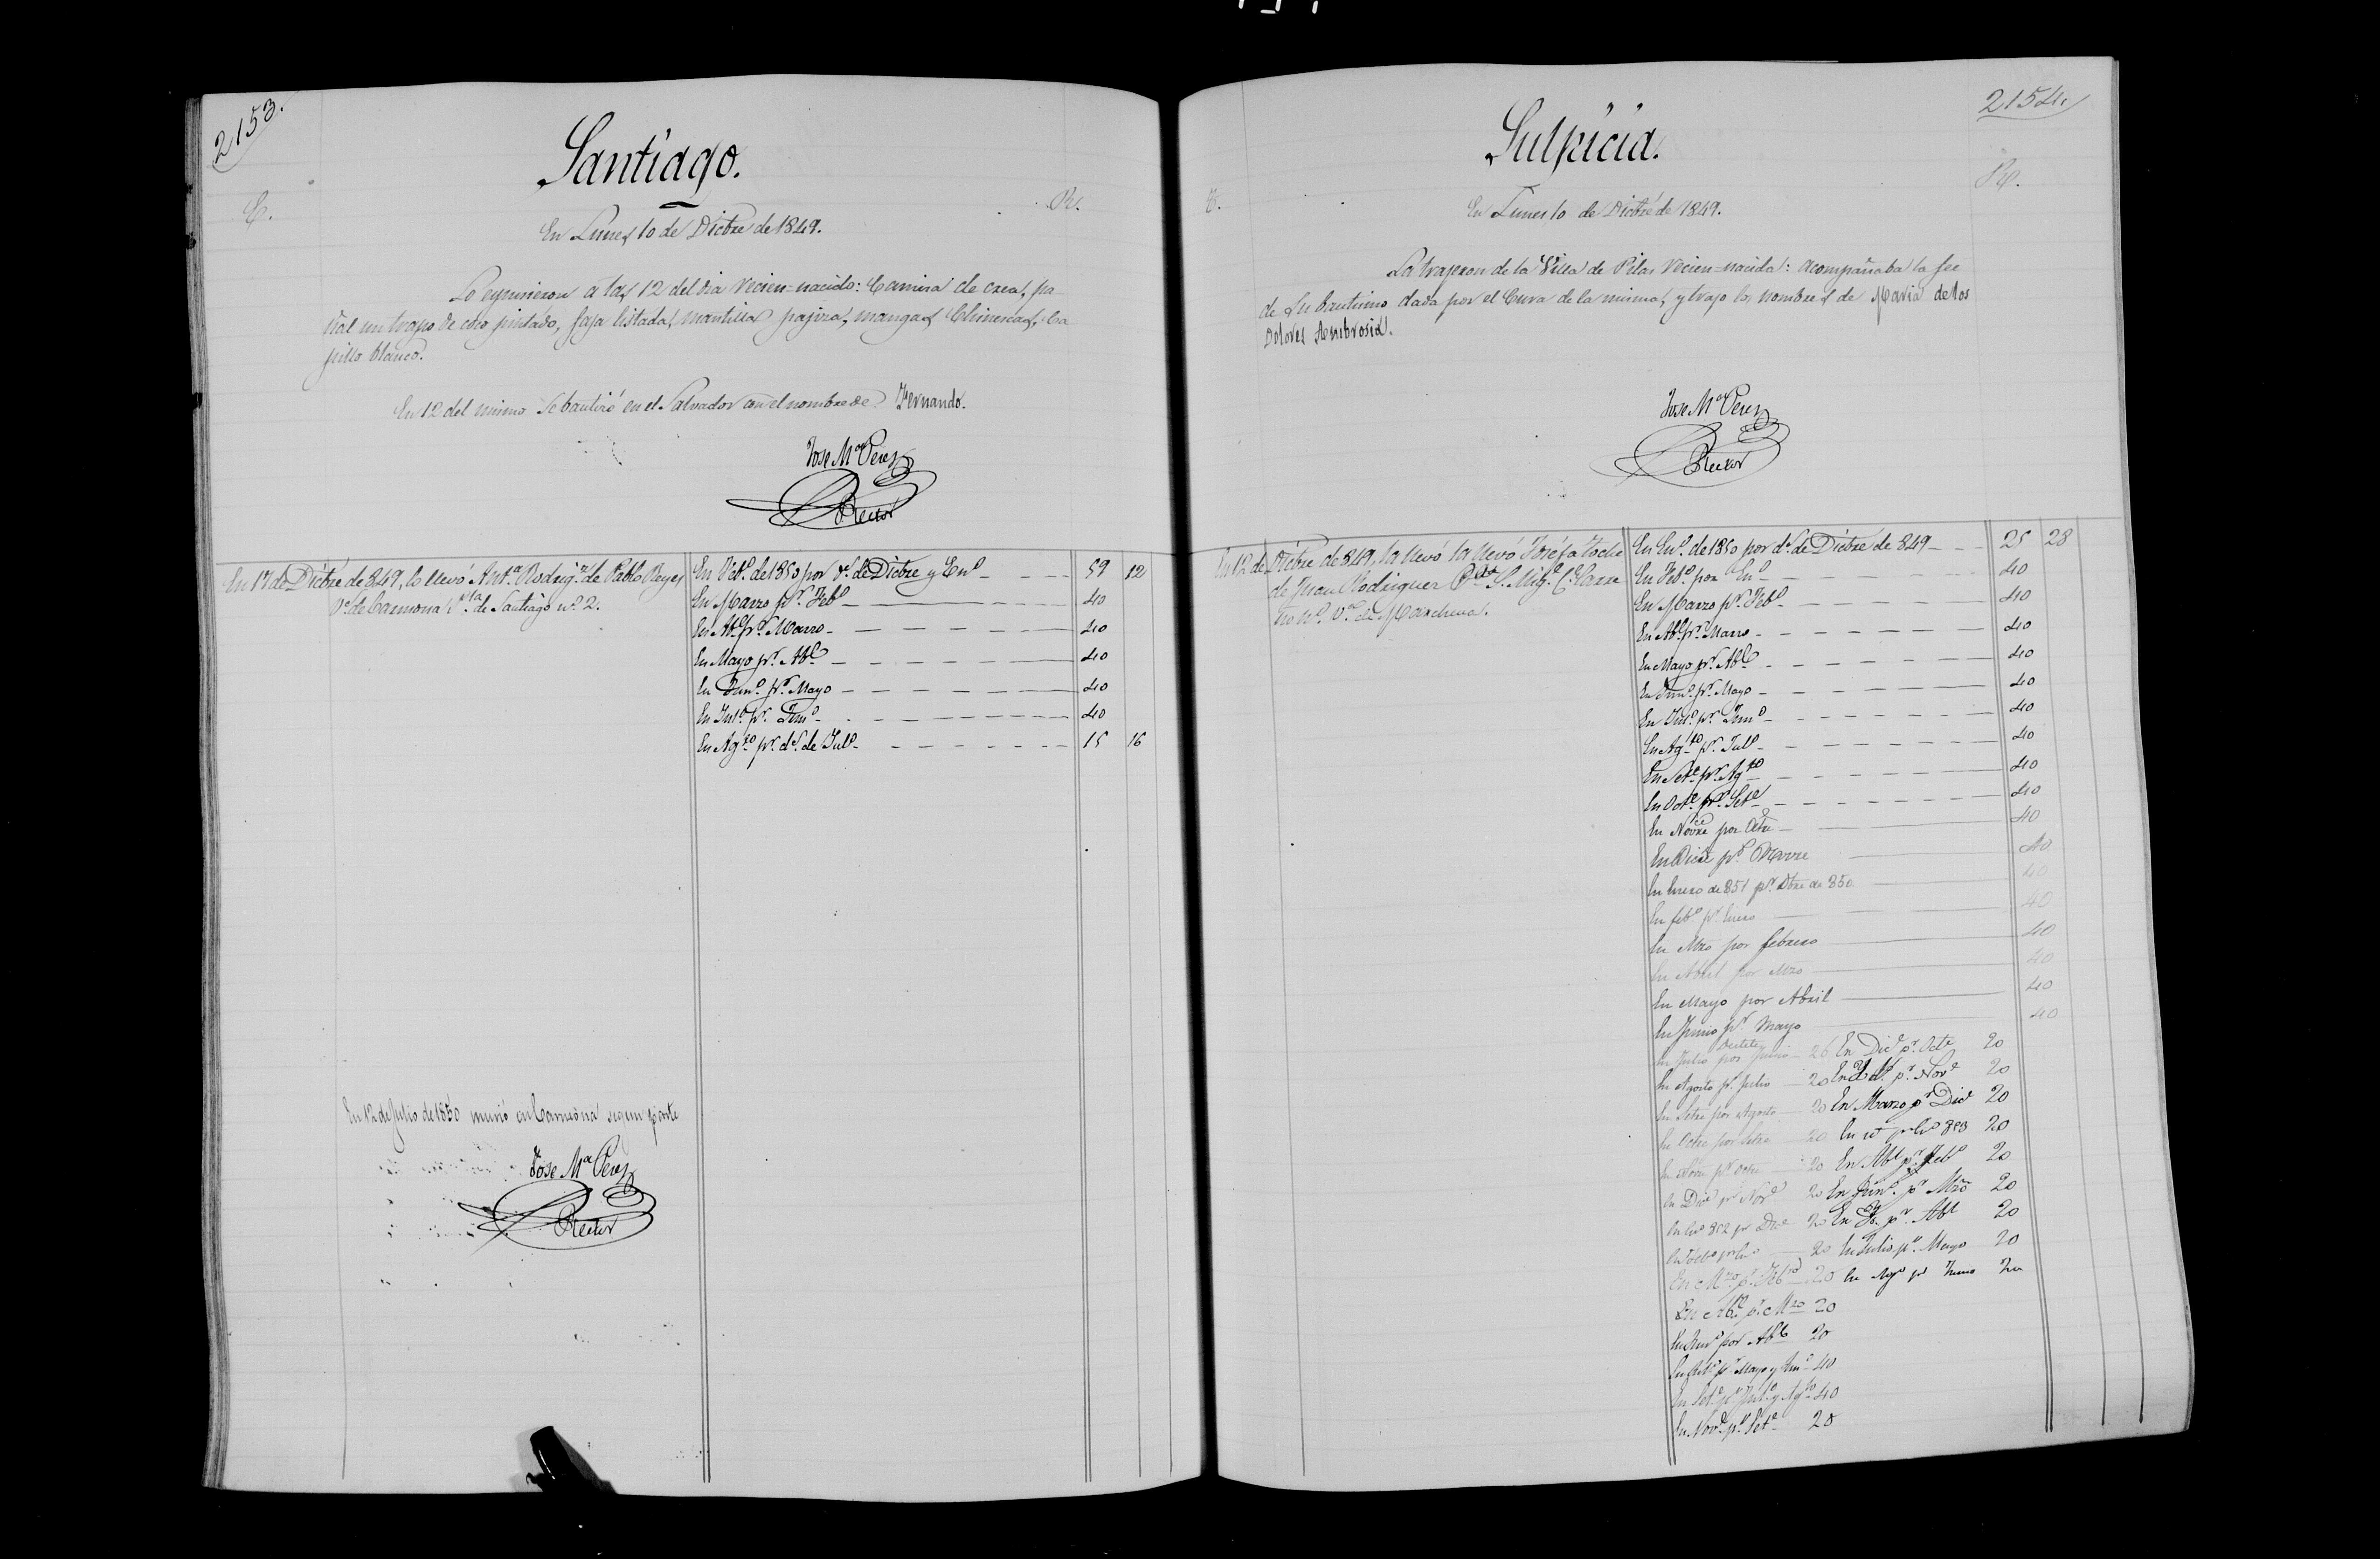 2153.
Santiago.
E.
R.
En Lunes 10 de Dictre de 1849.
Lo espusieron a las 12 del dia recien=nacido: Camisa de crea, pa
ñal un trapo de coco pintado, faja listada, mantilla pajiza, mangas Chinescas, Ca
pillo blanco.
En 12 del mismo Se bautizó en el Salvador con el nombre de Fernando.
Jose Ma Perez
Rector
En 17 de Dictre de 849, lo llevó Anta Rodrigz de Pablo Reyes
Vo de Carmona de Santiago no 2.
En Febo de 1850 por ds de Dictre y Eno 59 12
En Marzo pr Febo 40
En Abl pr Marzo 40
En Mayo pr Abl 40
En Juno pr Mayo 40
En Julo pr Juno 40
En Agto pr ds de Julo 15 16
En 12 de Julio de 1850 murió en Carmona segun parte
Jose Ma Perez
Rector
2154.
Sulpicia.
E.
R.
En Lunes 10 de Dictre de 1849.
La trageron de la Villa de Pilas recien=nacida: acompañaba la fee
de su bautismo dada por el Cura de la misma, y trajo los nombres de Maria de los
Dolores Ambrosia.
Jose Ma Perez
Rector
En 12 de Dictre de 849, la llevó la llevó Josefa
de Juan Rodriguez Sn Migl
no no Va de Marchena.
En Eno de 1850 por ds de Dictre de 849 25 28
En Febo por Eno 40
En Marzo pr Febo 40
En Abl pr Marzo 40
En Mayo pr Abl 40
En Juno pr Mayo 40
En Julo pr Juno 40
En Agto pr Julo 40
En Sete pr Agto 40
En Octe pr Sete 40
En Novre por Octe 40
En Dice pr Novre 40
En Enero de 851 pr Dbre de 850 40
En febo pr Enero 40
En Mzo por febrero 40
En Abril por Mzo 40
En Mayo por Abril 40
En Junio pr Mayo 40
Destete
En Julio por Junio 26 En Dice pr Octe 20
En Agosto pr Julio 20 pr Nove 20
En Setre por Agosto 20 En Marzo pr Dice 20
En Octre por Setre 20 pr Eno 853 20
En Novre pr Octre 20 En Abl pr Febo 20
En Dice pr Nove 20 En Juno pr Mzo 20
En Eno 852 pr Dice 20 pr Abl 20
En Febo pr Eno 20 En Julio pr Mayo 20
En Mzo pr Febo 20 En Ago pr Junio 20
En Abl pr Mzo 20
En Juno por Abl 20
pr Mayo y Juno 40
En Sete pr Julo y Agto 40
En Nove pr Sete 20